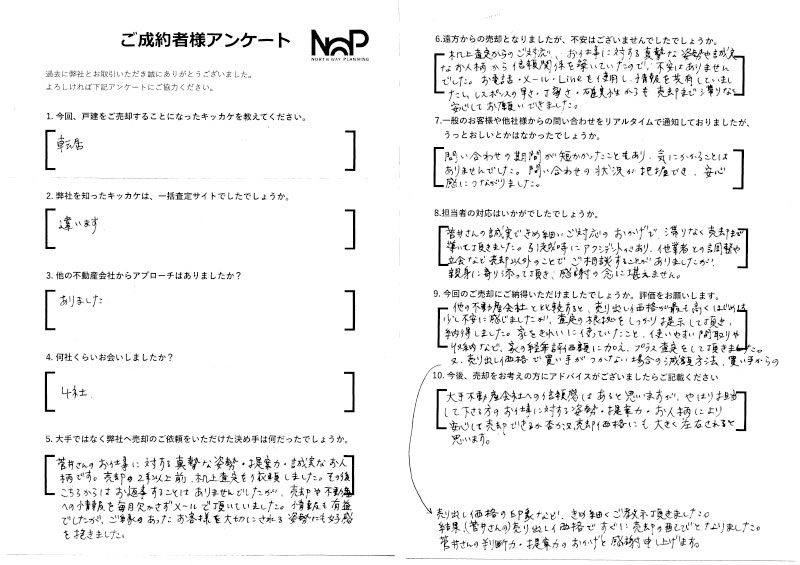 ご成約者様アンケート
NOP
NORTH WAY PLANNING
過去に弊社とお取引いただき誠にありがとうございました。
よろしければ下記アンケートにご協力ください。
1. 今回、戸建をご売却することになったキッカケを教えてください。
転居
2. 弊社を知ったキッカケは、一括査定サイトでしたでしょうか。
違います
3. 他の不動産会社からアプローチはありましたか？
ありました
4. 何社くらいお会いしましたか？
4社
5. 大手ではなく弊社へ売却のご依頼をいただけた決め手は何だったでしょうか。
菅井さんのお仕事に対する真摯な姿勢・提案力・誠実なお人
柄です。売却の2年以上前、机上査定を依頼しました。その後
こちらからはお返事することはありませんでしたが、売却や不動産
への情報を毎月欠かさずメールで頂いていました。情報も有益
でしたが、ご縁のあったお客様を大切にされる姿勢にも好感
を抱きました。
6.遠方からの売却となりましたが、不安はございませんでしたでしょうか。
机上査定からのご対応、お仕事に対する真摯な姿勢や誠実
なお人柄から信頼関係を築いていたので、不安はありません
でした。お電話・メール・Lineを使用し、情報を共有していまし
たし、レスポンスの早さ・丁寧さ・確実性からも売却まで滞りなく
安心してお願いできました。
7.一般のお客様や他社様からの問い合わせをリアルタイムで通知しておりましたが、
うっとおしいとかはなかったでしょうか。
問い合わせの期間が短かかったこともあり、気にかかることは
ありませんでした。問い合わせの状況が把握でき、安心
感につながりました。
8.担当者の対応はいかがでしたでしょうか。
菅井さんの誠実できめ細いご対応のおかげで、滞りなく売却まで
導いて頂きました。引渡時にアクシデントがあり、他業者との調整や
立会など売却以外のことでご相談することがありましたが、
親身に寄り添って頂き、感謝の念に堪えません。
9. 今回のご売却にご納得いただけましたでしょうか。評価をお願いします。
他の不動産会社と比較すると、売り出し価格が最も高くはじめは
少し不安に感じましたが、査定の根拠をしっかり提示して頂き、
納得しました。家をきれいに使っていたこと、使いやすい間取りや
収納など、家の経年評価額に加え、プラス査定をして頂きました。
又、売り出し価格で買い手がつかない場合の減額方法、買い手からの
10. 今後、売却をお考えの方にアドバイスがございましたらご記載ください
大手不動産会社への信頼感はあると思いますが、やはりお担当
して下さる方のお仕事に対する姿勢・提案力・お人柄により
安心して売却できるか否か、又売却価格にも大きく左右されると
思います。
売り出し価格の印象など、きめ細くご教示頂きました。
結果、(菅井さんの)売り出し価格ですぐに売却の運びとなりました。
菅井さんの判断力・提案力のおかげと感謝申し上げます。